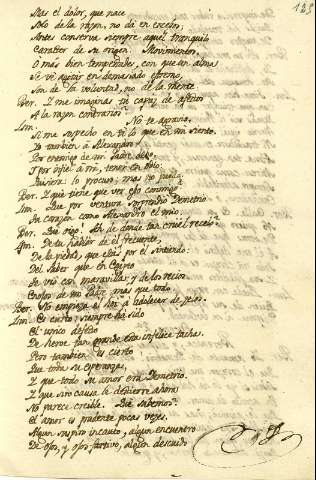 123
Mas el dolor, que nace
Solo de la razon, no dá en excesos,
Antes conserva siempre aquel tranquilo
Caracter de su origen. Movimientos,
O mas bien tempestades, con que un alma
Se vé agitar en demasiado estremo,
Son de la voluntad, no de la mente
Ber. Y me imaginas tu capaz de afectos
A la razon contrarios?
Lin. No te agravia,
Si me sospecho en ti lo que en mi siento.
Yo tambien á Alexandro
Por enemigo de mi Padre debo,
Y por infiel á mi, tener en odio:
Quisiera: lo procuro, mas no puedo.
Ber. Y que tiene que ver eso conmigo?
Lin. Que por ventura sorprendió Demetrio
Tu corazon como Alexandro el mio.
Ber. Que digo! Ah de donde tan cruel recelo?
Lin. De tu hablar de él frequente,
De la piedad, que
Del Saber que en Egipto
Se vió con maravilla: y de los recios
de un Padre, mas que todo.
Ber. No empieza el Sol á adolecer de zelos.
Lin. Es cierto; siempre ha sido
El unico defecto
De heroe tan grande esta infelice tacha.
Pero tambien es cierto
Que toda su esperanza,
Y que todo su amor era Demetrio.
Y que sin causa le destierre ahora
No parece creible. Qué sabemos?
El amor es prudente pocas veces.
Algun suspiro incauto, algun encuentro
De ojos, y ojos furtivo, algun descuido